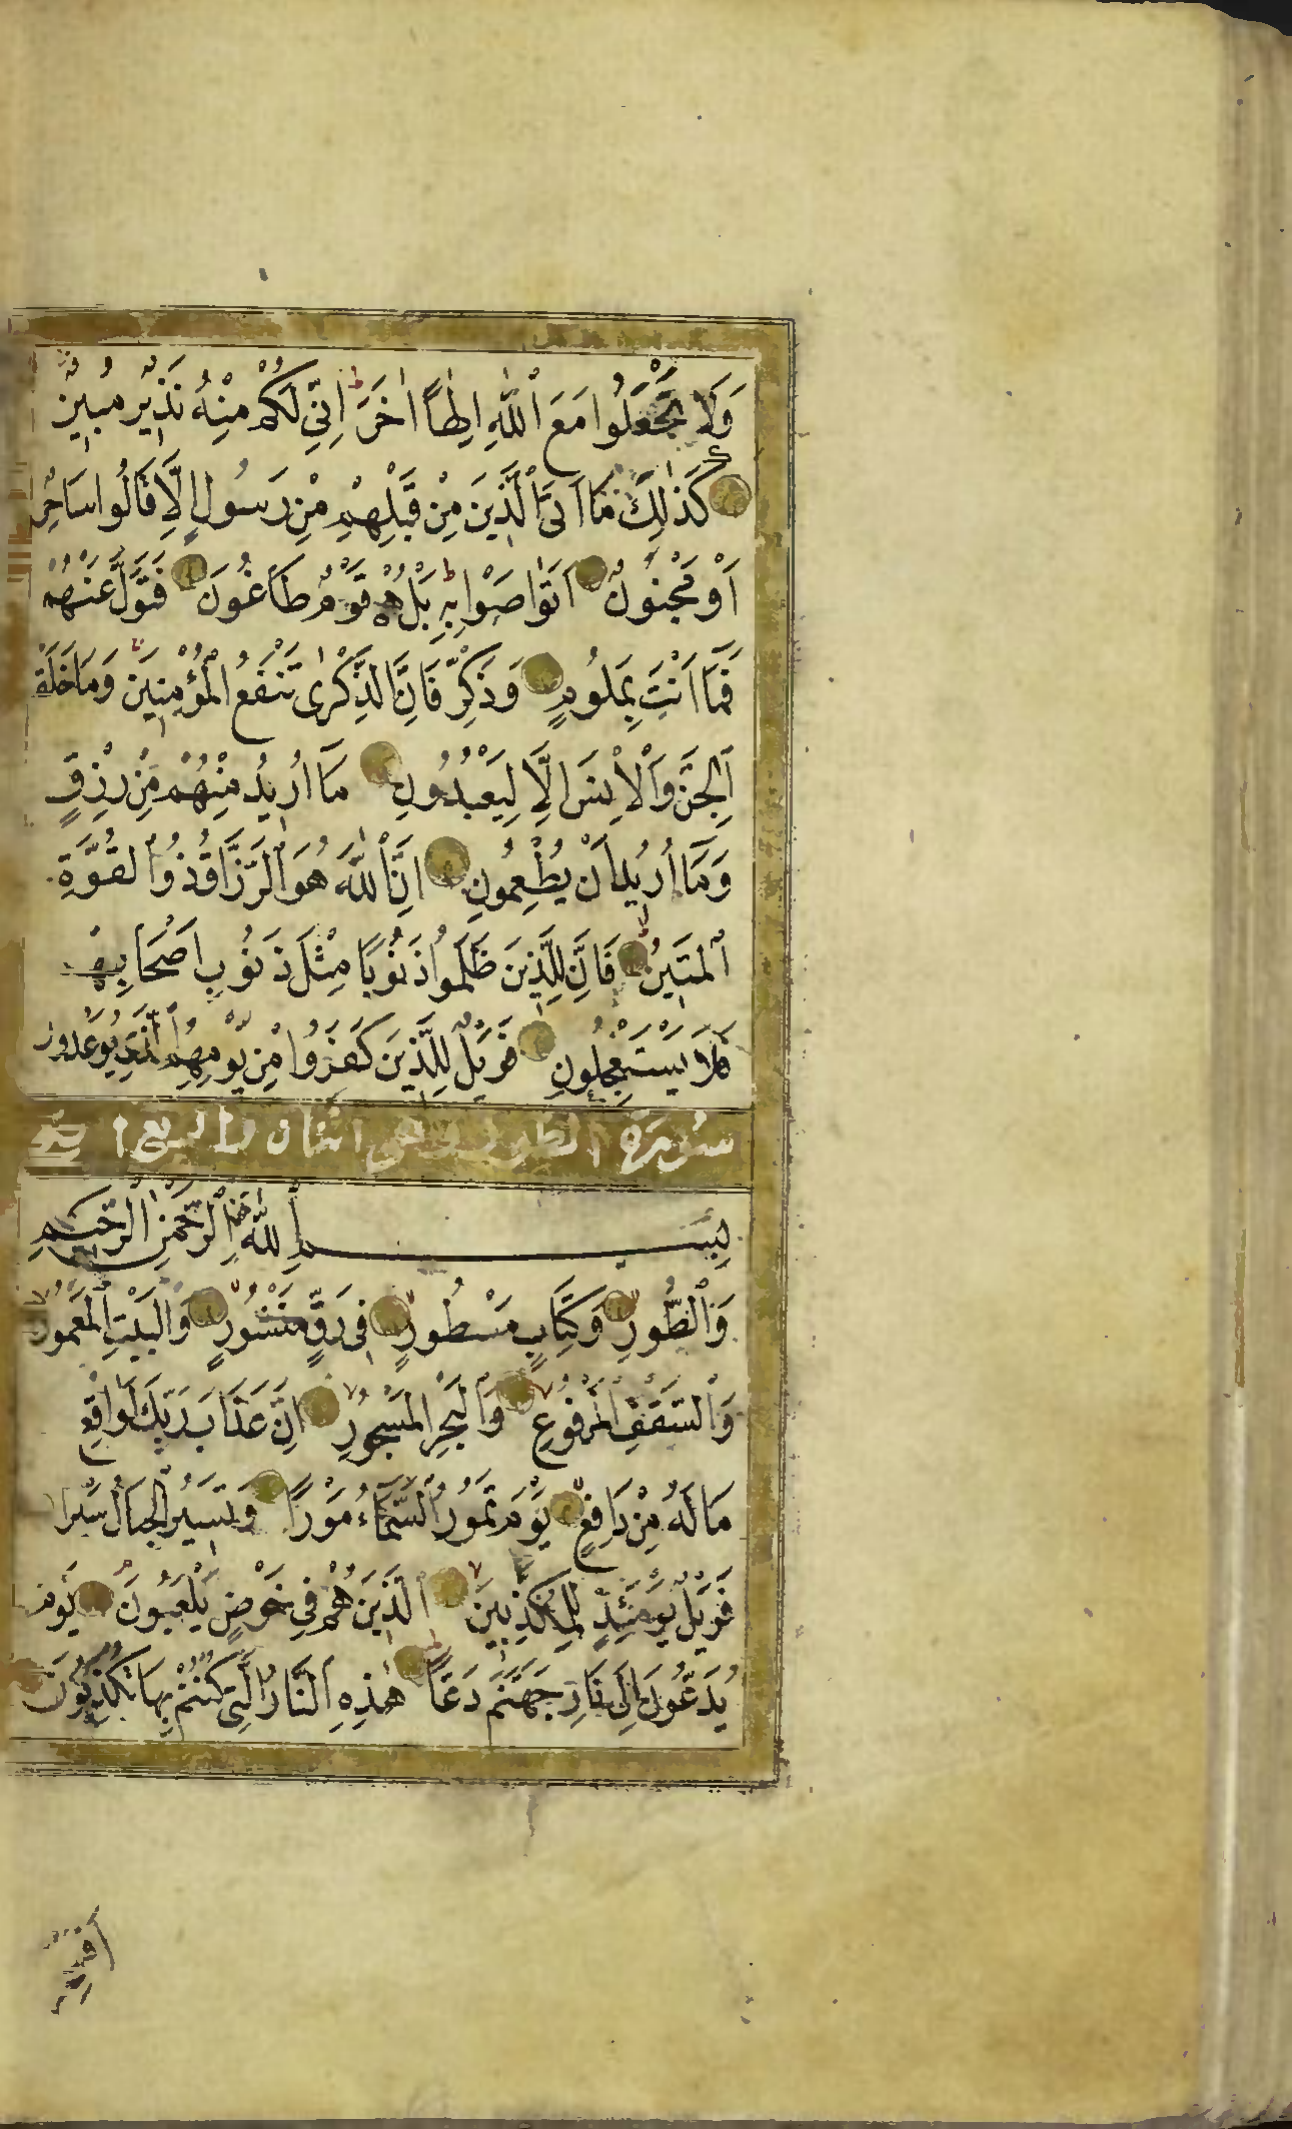 وَلَا تَجْعَلُوا مَعَ اللّٰهِ اِلٰهًا اٰخَرَ اِنِّي لَكُمْ مِنْهُ نَذِيرٌ مُبِينٌ
كَذٰلِكَ مَا اَتَى الَّذِينَ مِنْ قَبْلِهِمْ مِنْ رَسُولٍ اِلَّا قَالُوا سَاحِرٌ
اَوْ مَجْنُونٌ اَتَوَاصَوْا بِهِ بَلْ هُمْ قَوْمٌ طَاغُونَ فَتَوَلَّ عَنْهُمْ
فَمَا اَنْتَ بِمَلُومٍ وَذَكِّرْ فَاِنَّ الذِّكْرٰى تَنْفَعُ الْمُؤْمِنِينَ وَمَا خَلَقْتُ
الْجِنَّ وَالْاِنْسَ اِلَّا لِيَعْبُدُونِ مَا اُرِيدُ مِنْهُمْ مِنْ رِزْقٍ
وَمَا اُرِيدُ اَنْ يُطْعِمُونِ اِنَّ اللّٰهَ هُوَ الرَّزَّاقُ ذُو الْقُوَّةِ
الْمَتِينُ فَاِنَّ لِلَّذِينَ ظَلَمُوا ذَنُوبًا مِثْلَ ذَنُوبِ اَصْحَابِهِمْ
فَلَا يَسْتَعْجِلُونِ فَوَيْلٌ لِلَّذِينَ كَفَرُوا مِنْ يَوْمِهِمُ الَّذِي يُوعَدُونَ
سورة الطور وهي اثنان و اربع اية
بِسْمِ اللّٰهِ الرَّحْمٰنِ الرَّحِيمِ
وَالطُّورِ وَكِتَابٍ مَسْطُورٍ فِي رَقٍّ مَنْشُورٍ وَالْبَيْتِ الْمَعْمُورِ
وَالسَّقْفِ الْمَرْفُوعِ وَالْبَحْرِ الْمَسْجُورِ اِنَّ عَذَابَ رَبِّكَ لَوَاقِعٌ
مَا لَهُ مِنْ دَافِعٍ يَوْمَ تَمُورُ السَّمَاءُ مَوْرًا وَتَسِيرُ الْجِبَالُ سَيْرًا
فَوَيْلٌ يَوْمَئِذٍ لِلْمُكَذِّبِينَ الَّذِينَ هُمْ فِي خَوْضٍ يَلْعَبُونَ يَوْمَ
يُدَعُّونَ اِلٰى نَارِ جَهَنَّمَ دَعًّا هٰذِهِ النَّارُ الَّتِي كُنْتُمْ بِهَا تُكَذِّبُونَ